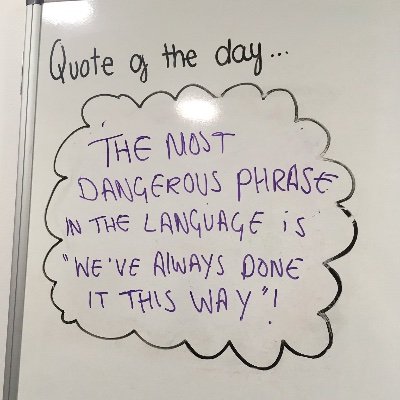 Quote of the day...
THE MOST
DANGEROUS PHRASE
IN THE LANGUAGE is
"WE'VE ALWAYS DONE
IT THIS WAY"!